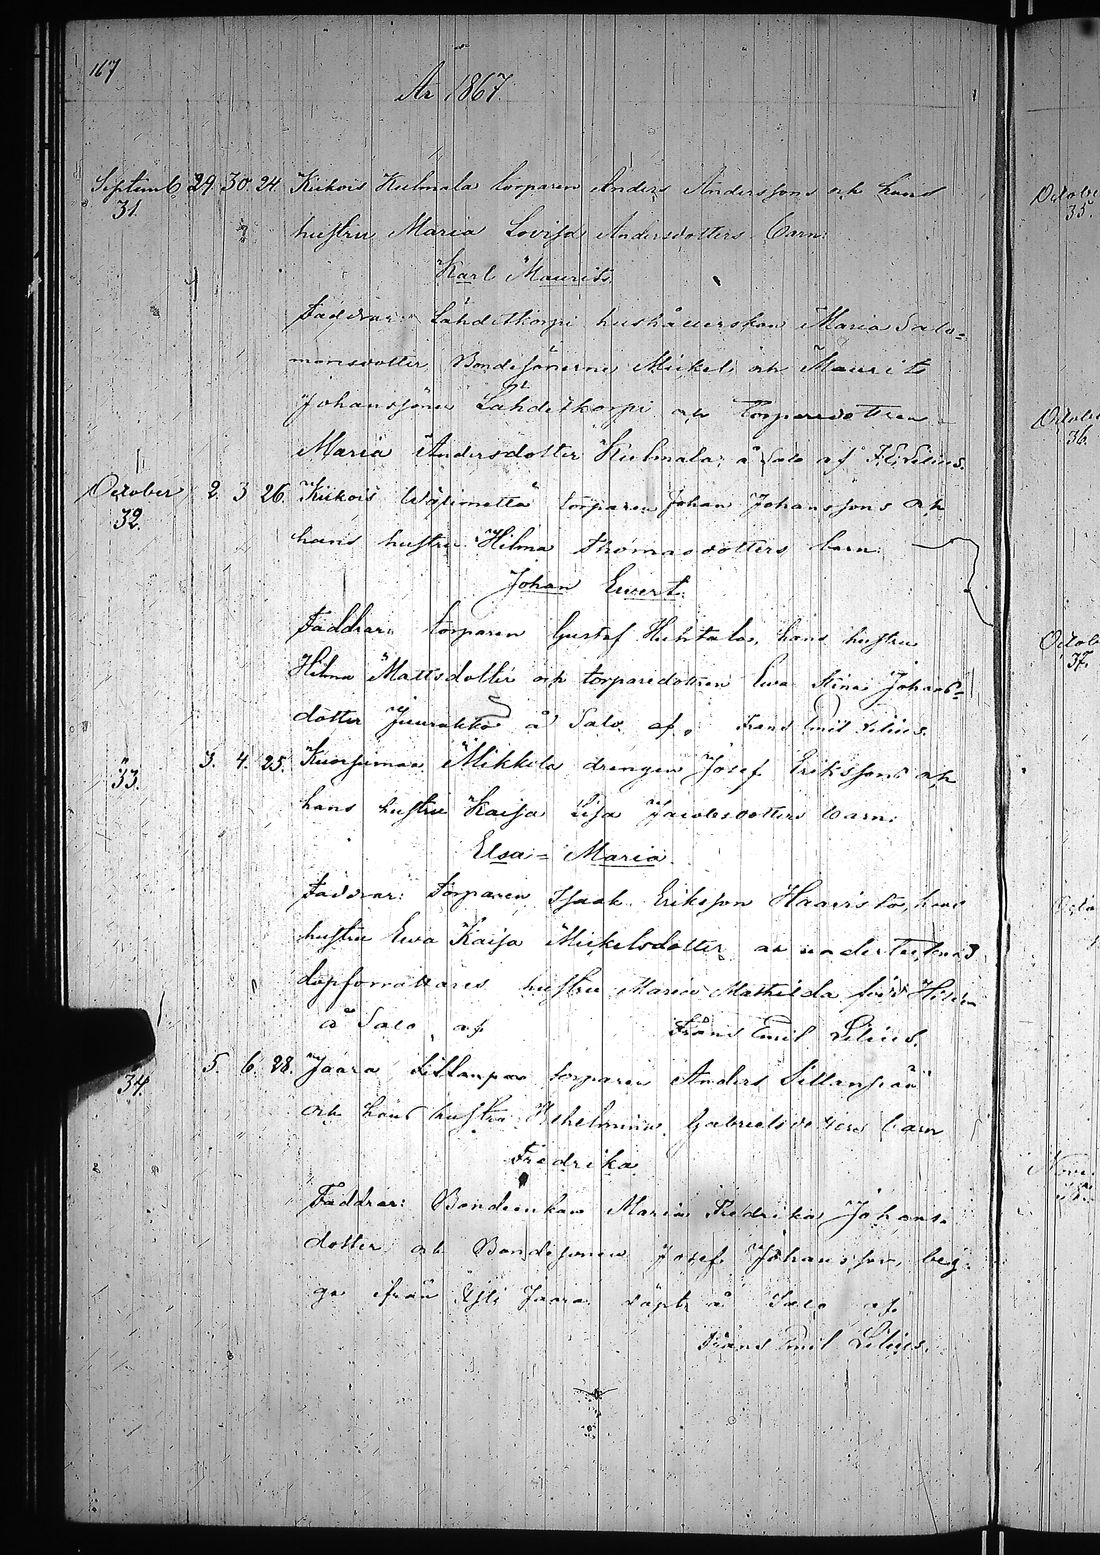 167
År 1867.
Septemb. 29. 30. 24. Kiikois Kulmala torparen Anders Anderssons och hans
31.
hustru Maria Lovisa Andersdotters barn:
Karl Maurits.
Faddrar: Lähdekorpi hushållerskan Maria Salo=
monsdotter, Bondesönerne Mickel och Maurits
Johanssöner Lähdekorpi och Torparedottren
Maria Andersdotter Kulmala, å Salo af F.E. Lilius.
October 2. 3. 26. Kiikois torparen Johan Johanssons och
32.
hans hustru Hilma Thomasdotters barn:
Johan Ewert.
Faddrar: torparen Gustaf Huhtala, hans hustru
Hilma Mattsdotter och torparedottren Ewa Stina Johans=
dotter Juurakko å Salo af, Frans Emil Lilius.
" 3. 4. 25. Mikkola drengen Josef Erikssons och
33.
hans hustru Kaisa Lisa Jacobsdotters barn:
Elsa= Maria.
Faddrar: Torparen Isaak Eriksson Haavisto, hans
hustru Ewa Kaisa Mickelsdotter, och undertecknad
dopförrättares hustru Maria Mathilda född
å Salo af Frans Emil Lilius.
5. 6. 28. Jaara Sillanpää torparen Anders Sillanpää
34.
och hans hustru Wilhelmina Gabrielsdotters barn
Fredrika
Faddrar: Bondeenkan Maria Fredrika Johans=
dotter och Bondesonen Josef Johansson, beg=
ge ifrån Yli Jaara döpt å Salo af
Frans Emil Lilius.
October
35.
October
36.
October
37.